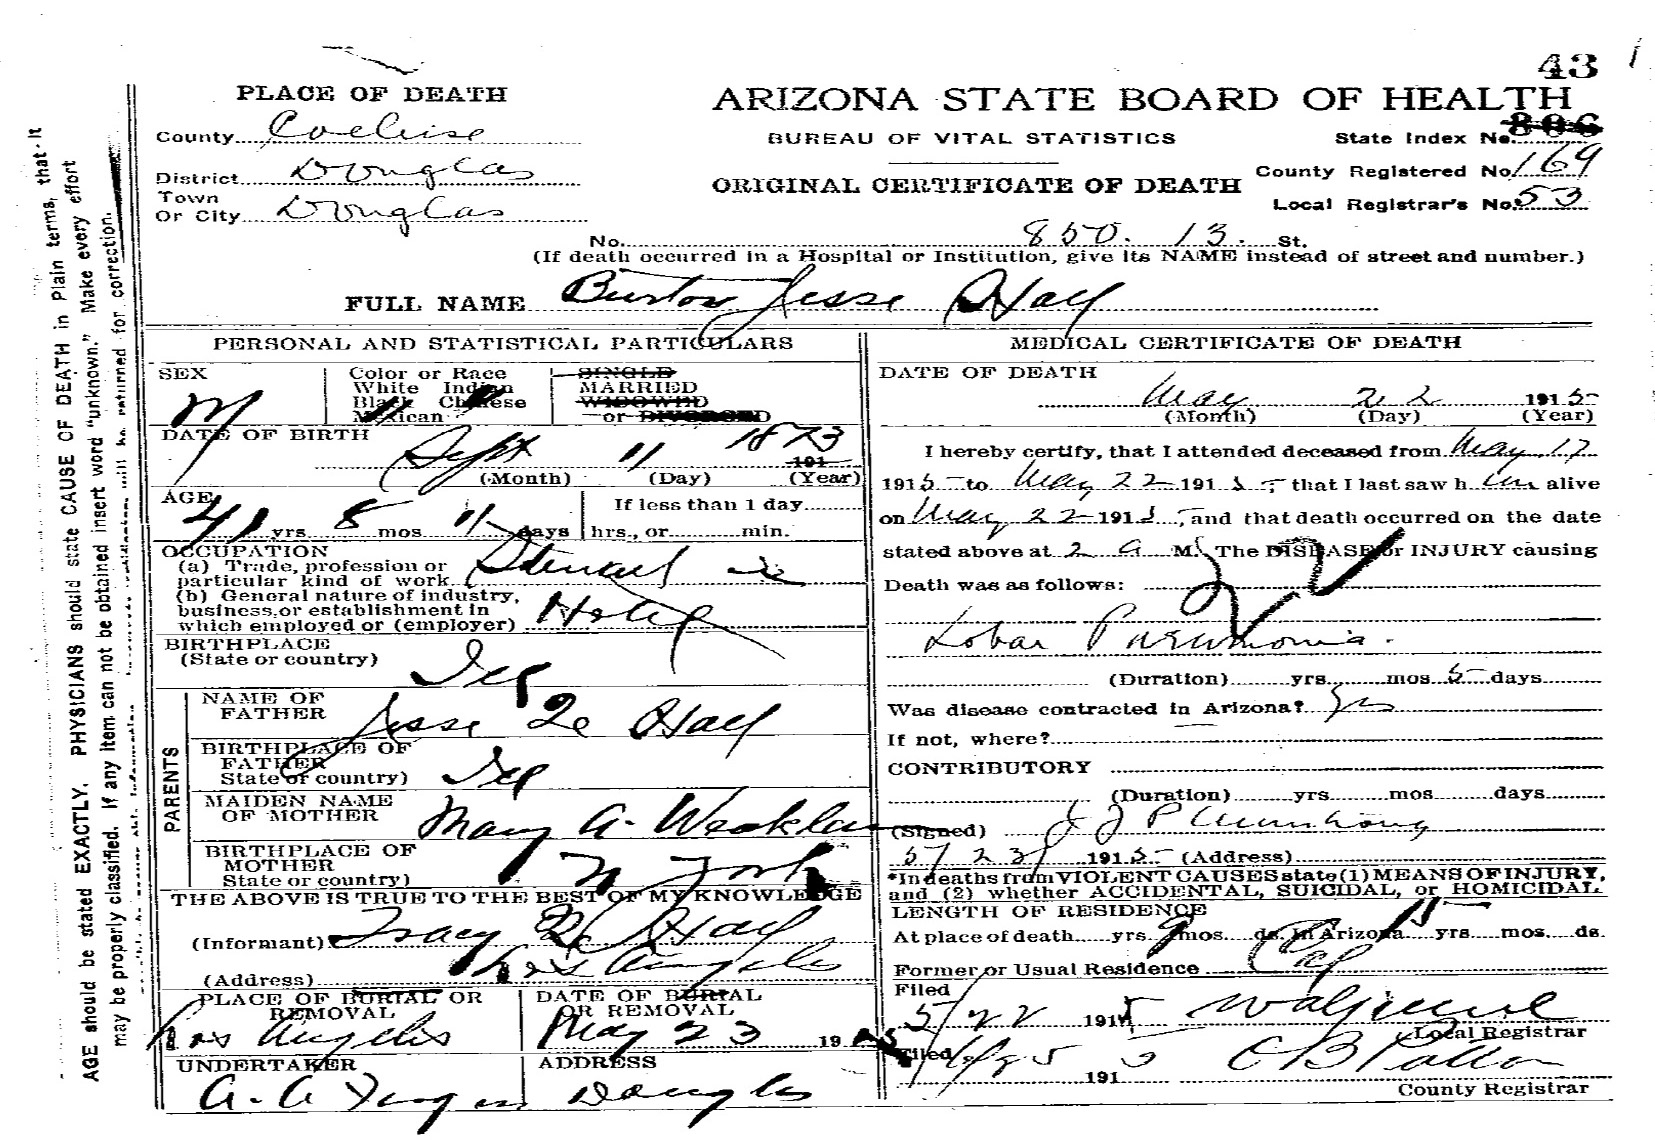 43
PLACE OF DEATH
ARIZONA STATE BOARD OF HEALTH
County Cochise
BUREAU OF VITAL STATISTICS
State Index No. 806
District Douglas
ORIGINAL CERTIFICATE OF DEATH
County Registered No. 169
Town
Or City Douglas
Local Registrar's No. 53
No. 850. 13. St.
(If death occurred in a Hospital or Institution, give its NAME instead of street and number.)
FULL NAME Burton Jesse Hay
PERSONAL AND STATISTICAL PARTICULARS
SEX
M
Color or Race
White Indian
Black Chinese
Mexican
SINGLE
MARRIED
WIDOWED
or DIVORCED
DATE OF BIRTH
Sept 11 1873
191
(Month) (Day) (Year)
AGE
41 yrs 8 mos 11 days
If less than 1 day
hrs., or min.
OCCUPATION
(a) Trade, profession or
particular kind of work
(b) General nature of industry,
business, or establishment in
which employed or (employer) Hotel
BIRTHPLACE
(State or country)
Ill
PARENTS
NAME OF
FATHER Jesse Hay
BIRTHPLACE OF
FATHER
State or country) Ill
MAIDEN NAME
OF MOTHER Mary A.
BIRTHPLACE OF
MOTHER
State or country) N York
THE ABOVE IS TRUE TO THE BEST OF MY KNOWLEDGE
(Informant) Tracy Hay
(Address) Los Angeles
PLACE OF BURIAL OR
REMOVAL
Los Angeles
DATE OF BURIAL
OR REMOVAL
May 23 19
UNDERTAKER
A. A.
ADDRESS
Douglas
MEDICAL CERTIFICATE OF DEATH
DATE OF DEATH
May 22 1915
(Month) (Day) (Year)
I hereby certify, that I attended deceased from May 17
1915 to May 22 1915, that I last saw h im alive
on May 22 1915, and that death occurred on the date
stated above at 2 a M. The DISEASE or INJURY causing
Death was as follows:
Lobar Pneumonia.
(Duration) yrs mos 5 days
Was disease contracted in Arizona? Yes
If not, where?
CONTRIBUTORY
(Duration) yrs mos days
(Signed)
5/23/ 1915 (Address)
*In deaths from VIOLENT CAUSES state (1) MEANS OF INJURY,
and (2) whether ACCIDENTAL, SUICIDAL, or HOMICIDAL
LENGTH OF RESIDENCE
At place of death yrs 9 mos ds. In Arizona 15 yrs mos ds.
Former or Usual Residence Cal
Filed
5/22 191
Local Registrar
Filed
191 C B
County Registrar
AGE should be stated EXACTLY. PHYSICIANS should state CAUSE OF DEATH in Plain terms, that it
may be properly classified. If any item can not be obtained insert word "unknown." Make every effort
will be returned for correction.